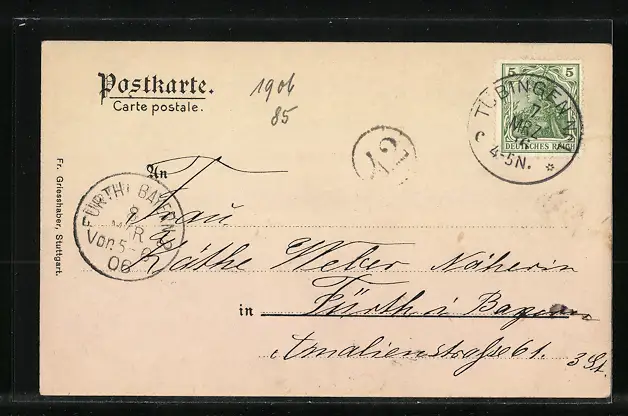 Postkarte.
Carte postale.
1906
85
5 5
DEUTSCHES REICH
TÜBINGEN
7
MRZ
4-5N.
An
Frau
Käthe Weber Näherin
in Fürth i Bayern
Amalienstrasse 61. 3 St.
FÜRTH BAYERN
8
MÄR
Vor. 5-6
06
Fr. Griesshaber, Stuttgart.